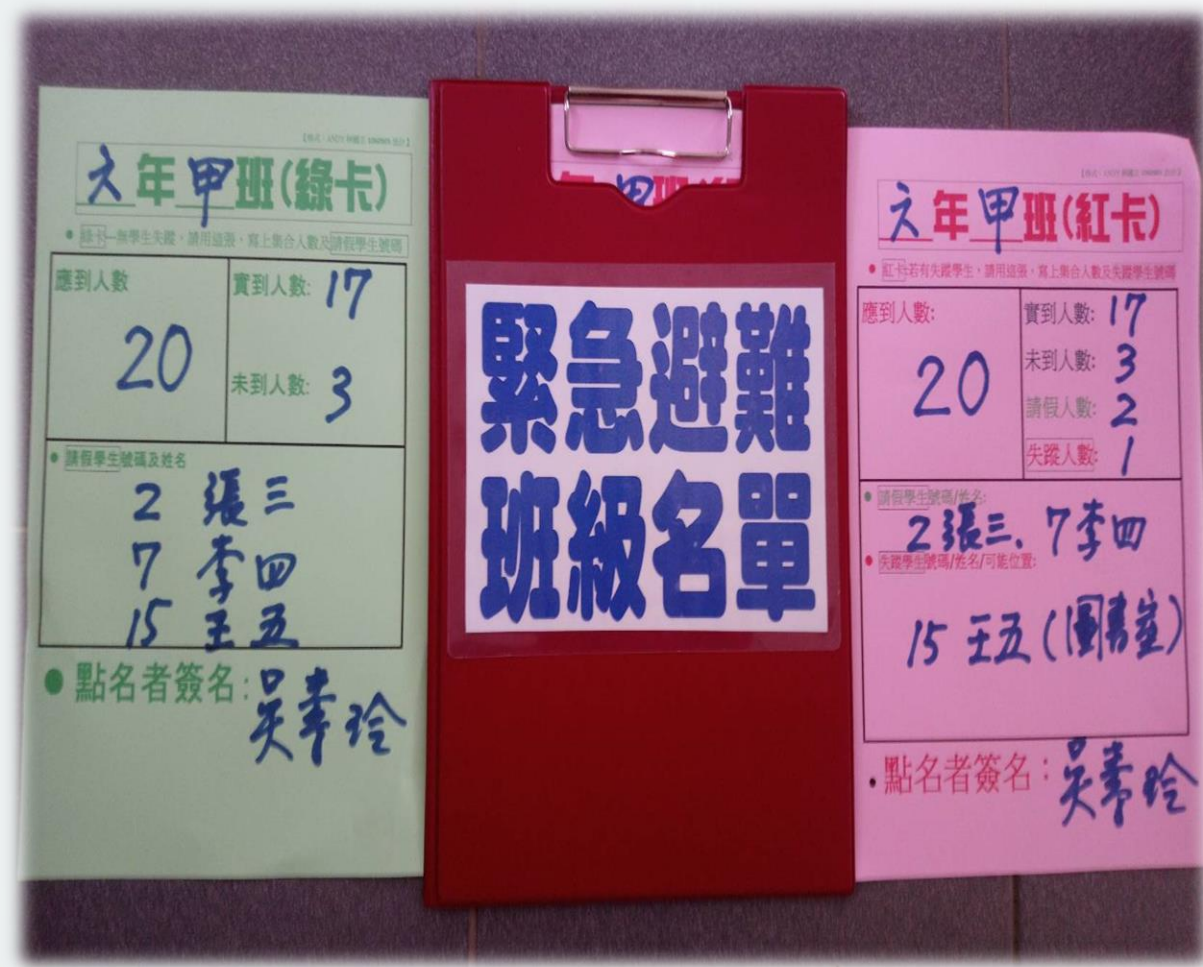 六年甲班(綠卡)
● 綠卡—無學生失蹤,請用這張,寫上集合人數及請假學生號碼
應到人數
20
實到人數: 17
未到人數: 3
● 請假學生號碼及姓名
2 張三
7 李四
15 王五
● 點名者簽名:吳
緊急避難
班級名單
六年甲班(紅卡)
● 紅卡-若有失蹤學生,請用這張,寫上集合人數及失蹤學生號碼
應到人數:
20
實到人數: 17
未到人數: 3
請假人數: 2
失蹤人數: 1
● 請假學生號碼/姓名:
2張三. 7李四
● 失蹤學生號碼/姓名/可能位置:
15 王五(圖書室)
● 點名者簽名:吳